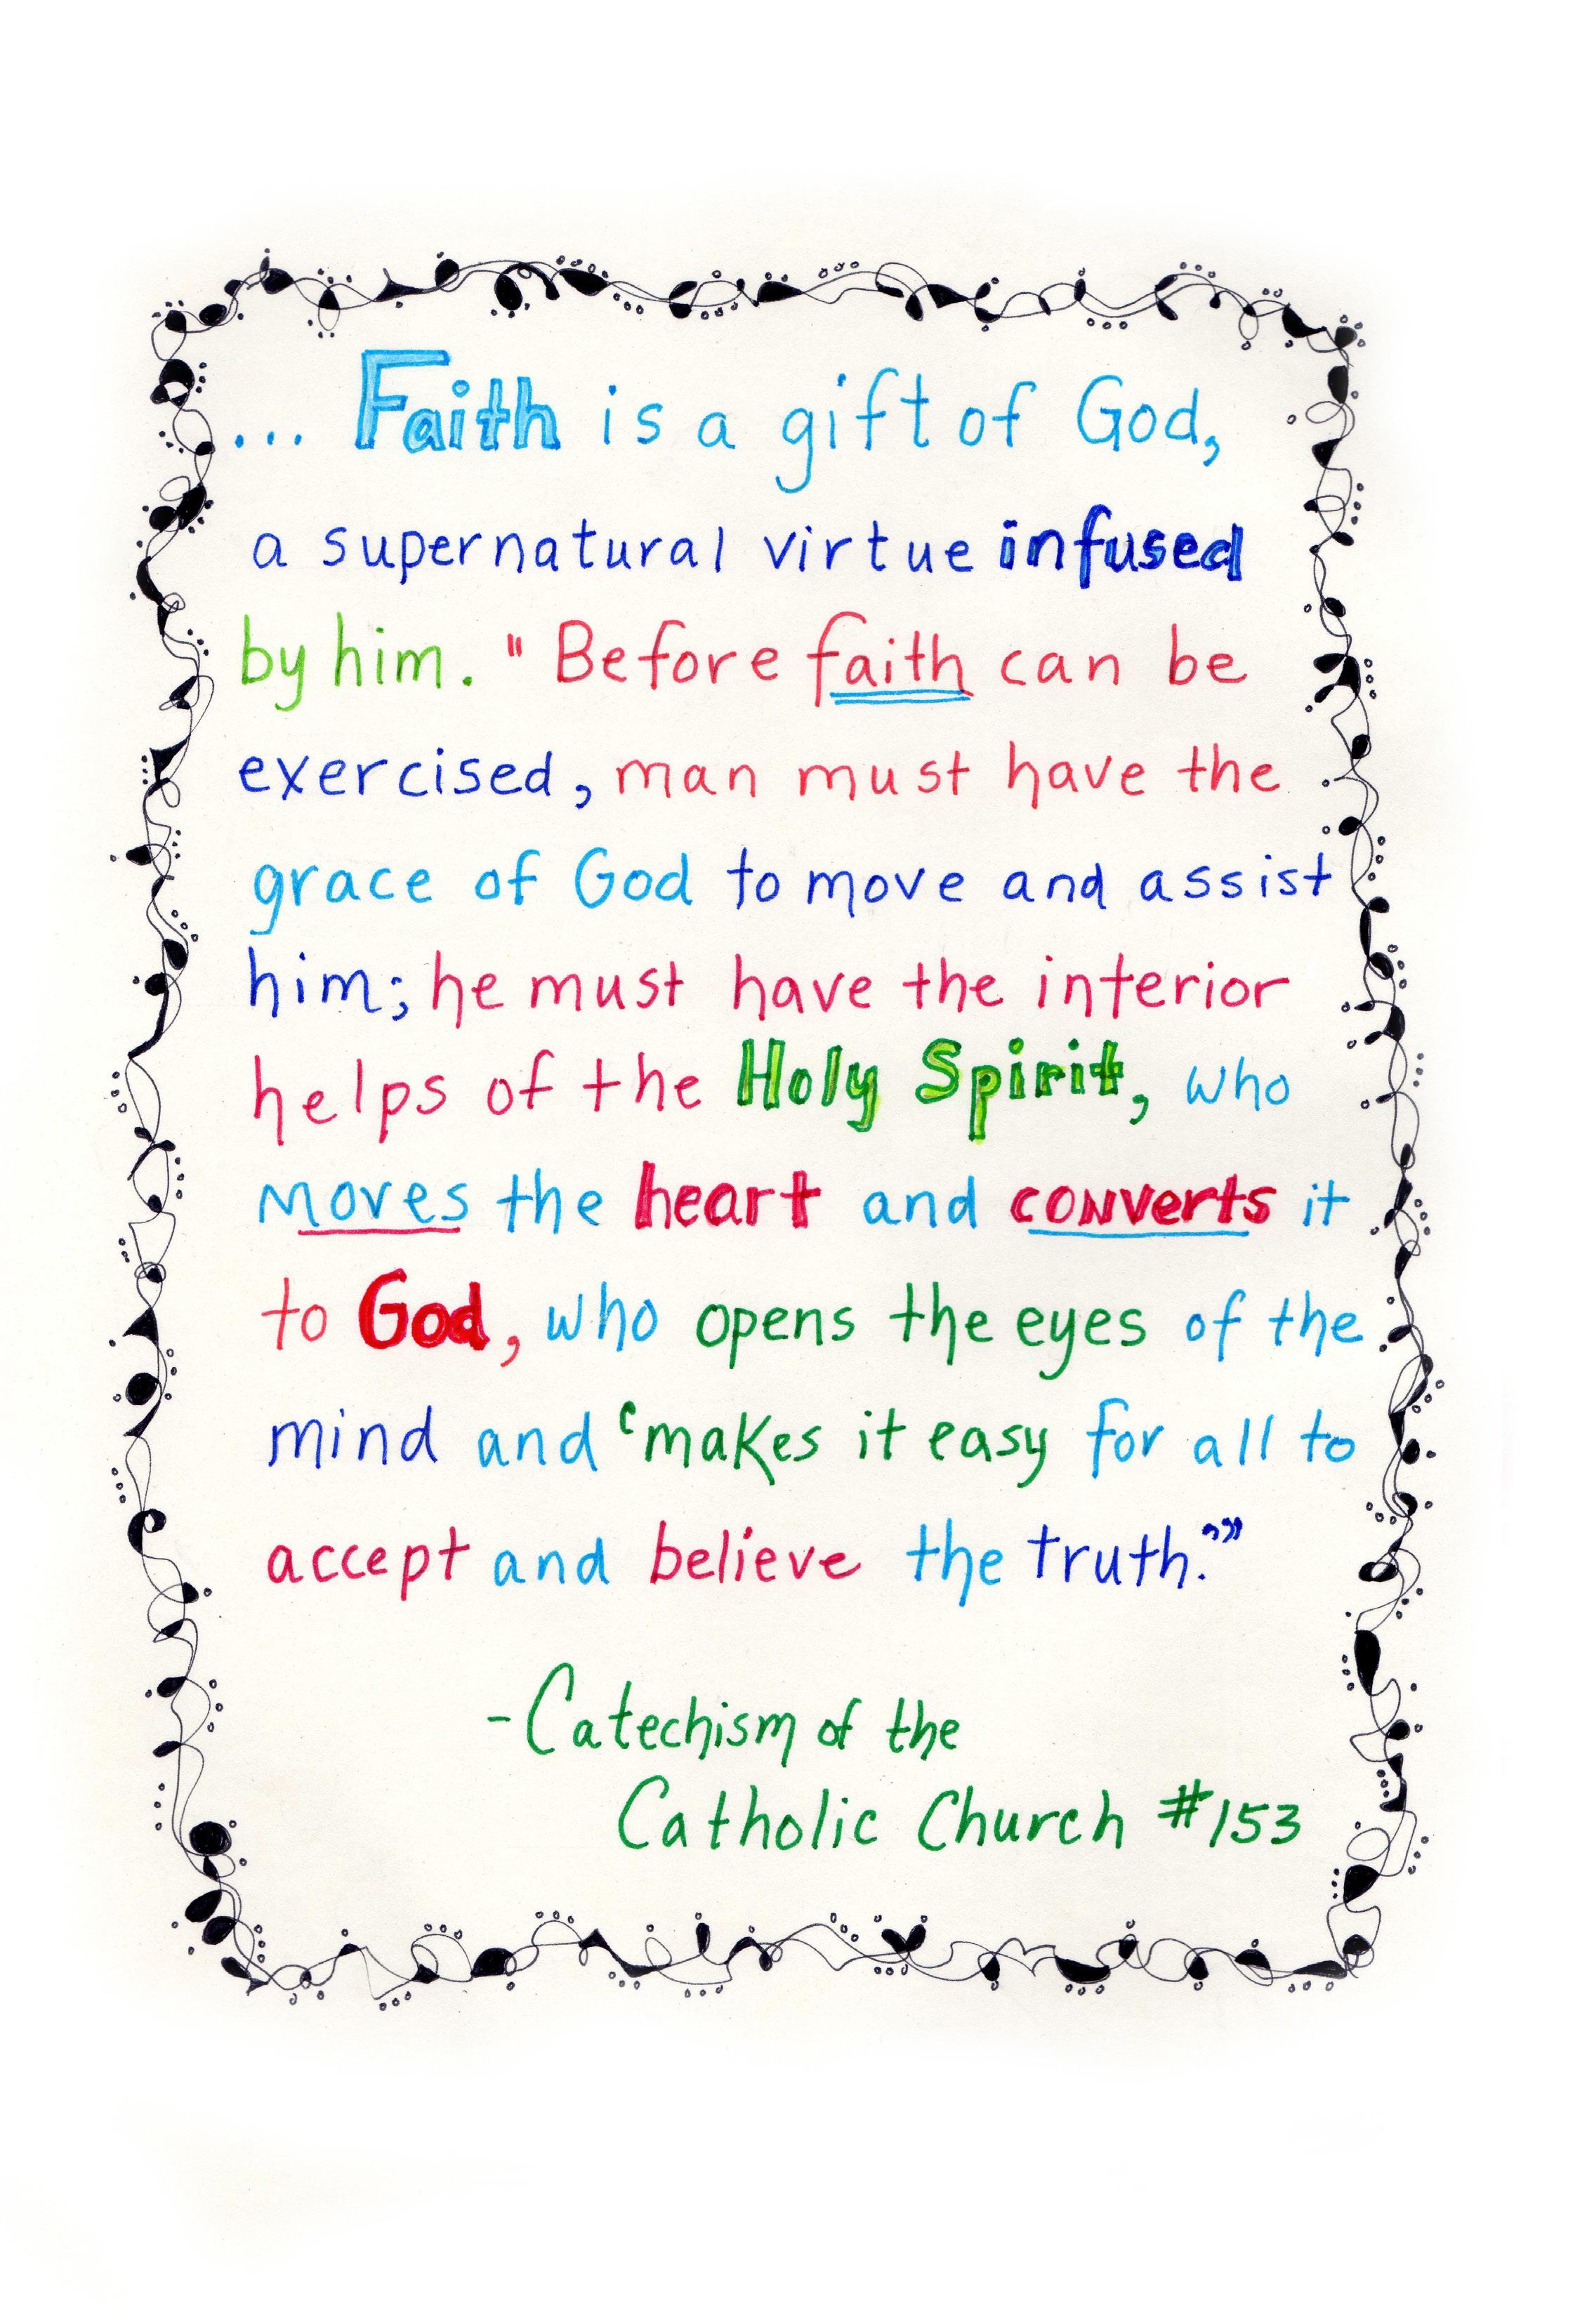 ... Faith is a gift of God,
a supernatural virtue infused
by him. "Before faith can be
exercised, man must have the
grace of God to move and assist
him; he must have the interior
helps of the Holy Spirit, who
moves the heart and converts it
to God, who opens the eyes of the
mind and 'makes it easy for all to
accept and believe the truth.'"
-Catechism of the
Catholic Church #153